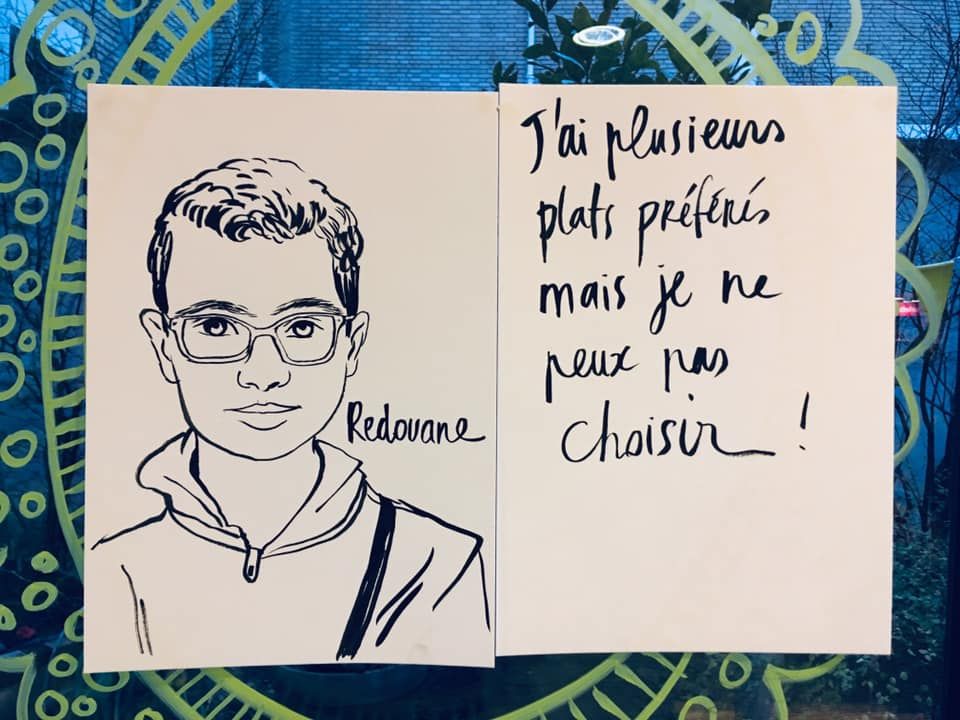 Redouane
J'ai plusieurs
plats préférés
mais je ne
peux pas
choisir !